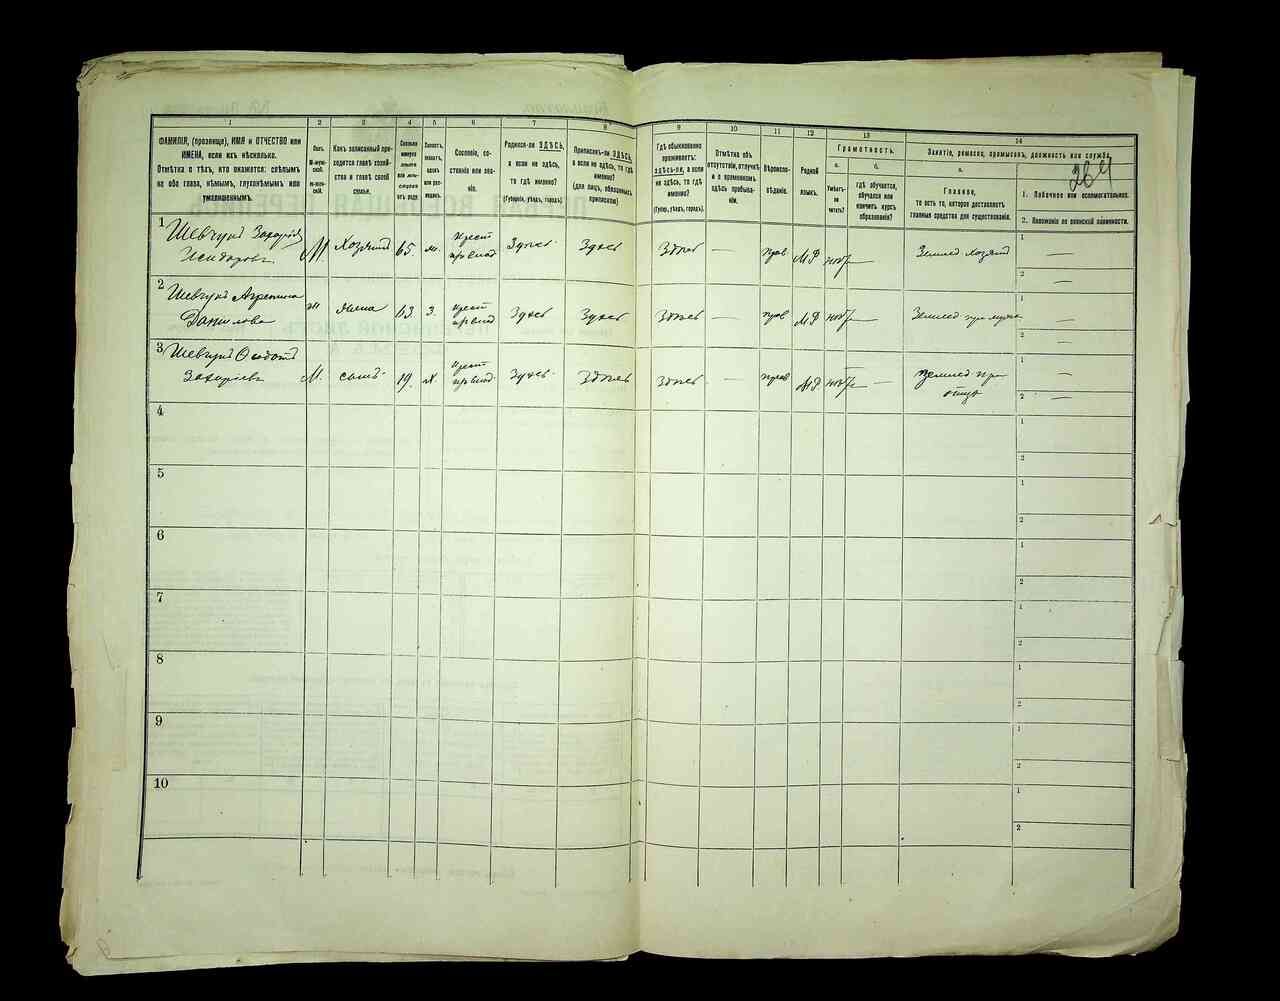 1 2 3 4 5 6 7 8 9 10 11 12 13 14
264
ФАМИЛІЯ, (прозвище), ИМЯ и ОТЧЕСТВО или
ИМЕНА, если ихъ нѣсколько.
Отмѣтка о тѣхъ, кто окажется: слѣпымъ
на оба глаза, нѣмымъ, глухонѣмымъ или
умалишеннымъ.
Полъ.
М-муж-
ской.
Ж-жен-
скій.
Какъ записанный при-
ходится главѣ хозяй-
ства и главѣ своей
семьи.
Сколько
минуло
лѣтъ
или мѣс-
отъ роду.
Холостъ,
женатъ,
вдовъ
или раз-
веденъ.
Сословіе, со-
стояніе или зва-
ніе.
Родился-ли ЗДѢСЬ,
а если не здѣсь,
то гдѣ именно?
(Губернія, уѣздъ, городъ).
Приписанъ-ли ЗДѢСЬ,
а если не здѣсь, то гдѣ
именно?
(для лицъ, обязанныхъ
припискою)
Гдѣ обыкновенно
проживаетъ:
здѣсь-ли, а если
не здѣсь, то гдѣ
именно?
(Губер., уѣздъ, городъ).
Отмѣтка объ
отсутствіи, отлучкѣ
и о временномъ
здѣсь пребыва-
ніи.
Вѣроиспо-
вѣданіе.
Родной
языкъ.
Грамотность.
а. б.
Умѣетъ-
ли
читать?
гдѣ обучается,
обучался или
кончилъ курсъ
образованія?
Занятіе, ремесло, промыселъ, должность или служба.
Главное,
то есть то, которое доставляетъ
главныя средства для существованія.
1. Побочное или вспомогательное.
2. Положеніе по воинской повинности.
1 Шевчукъ Захарій
Исидоровъ М. Хозяинъ 65 м. Крест Здѣсь Здѣсь Здѣсь — прав М Р нѣт — Землед хозяинъ 1 —
2 —
2 Шевчукъ Агрепина
Данилова ж жена 63. З. Крест Здѣсь Здѣсь Здѣсь — прав М Р нѣт — Землед при мужѣ 1 —
2 —
3 Шевчукъ Ѳедотъ
Захаріевъ М. сынъ 19. Х. Крест Здѣсь Здѣсь Здѣсь — прав М Р нѣт — Землед при
отцѣ
1 —
2 —
4 1
2
5 1
2
6 1
2
7 1
2
8 1
2
9 1
2
10 1
2